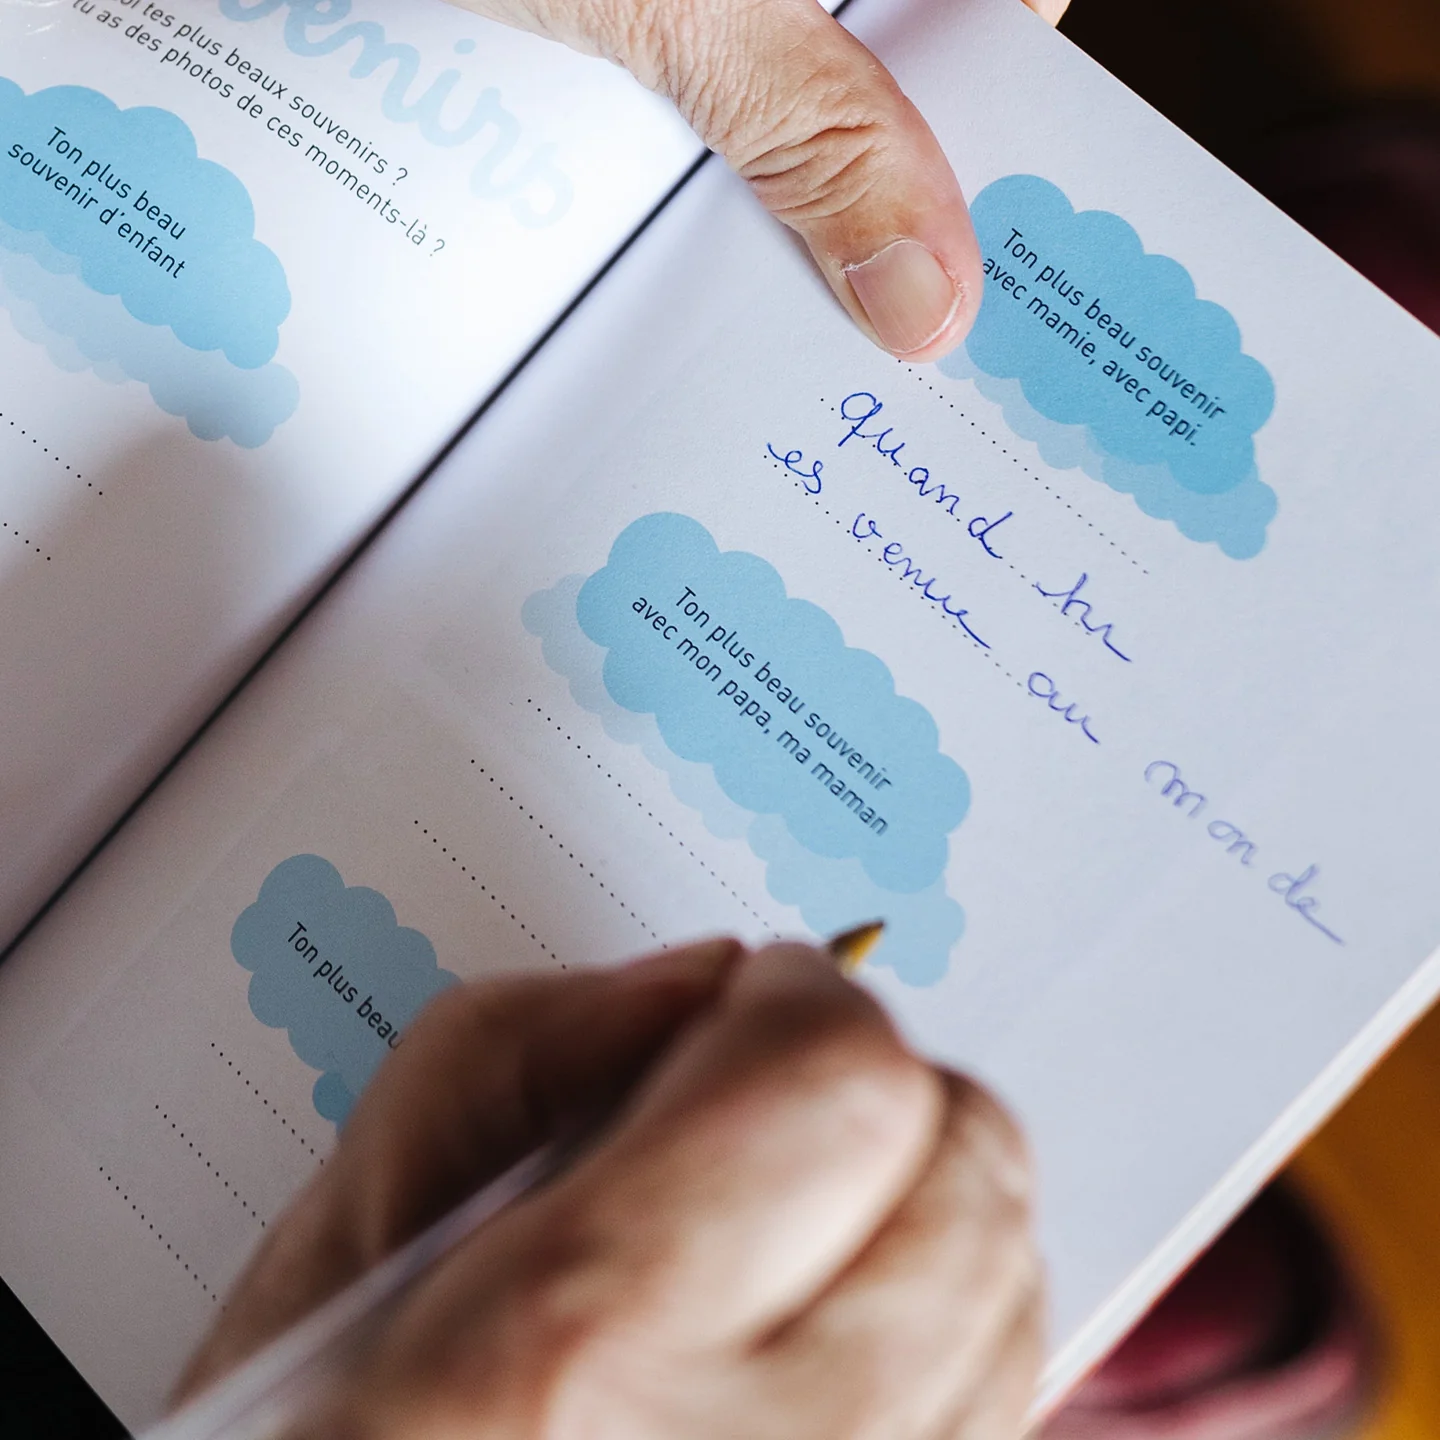 tes plus beaux souvenirs ?
tu as des photos de ces moments-là ?
Ton plus beau
souvenir d'enfant
Ton plus beau souvenir
avec mamie, avec papi.
quand tu
es venue au monde
Ton plus beau souvenir
avec mon papa, ma maman
Ton plus beau